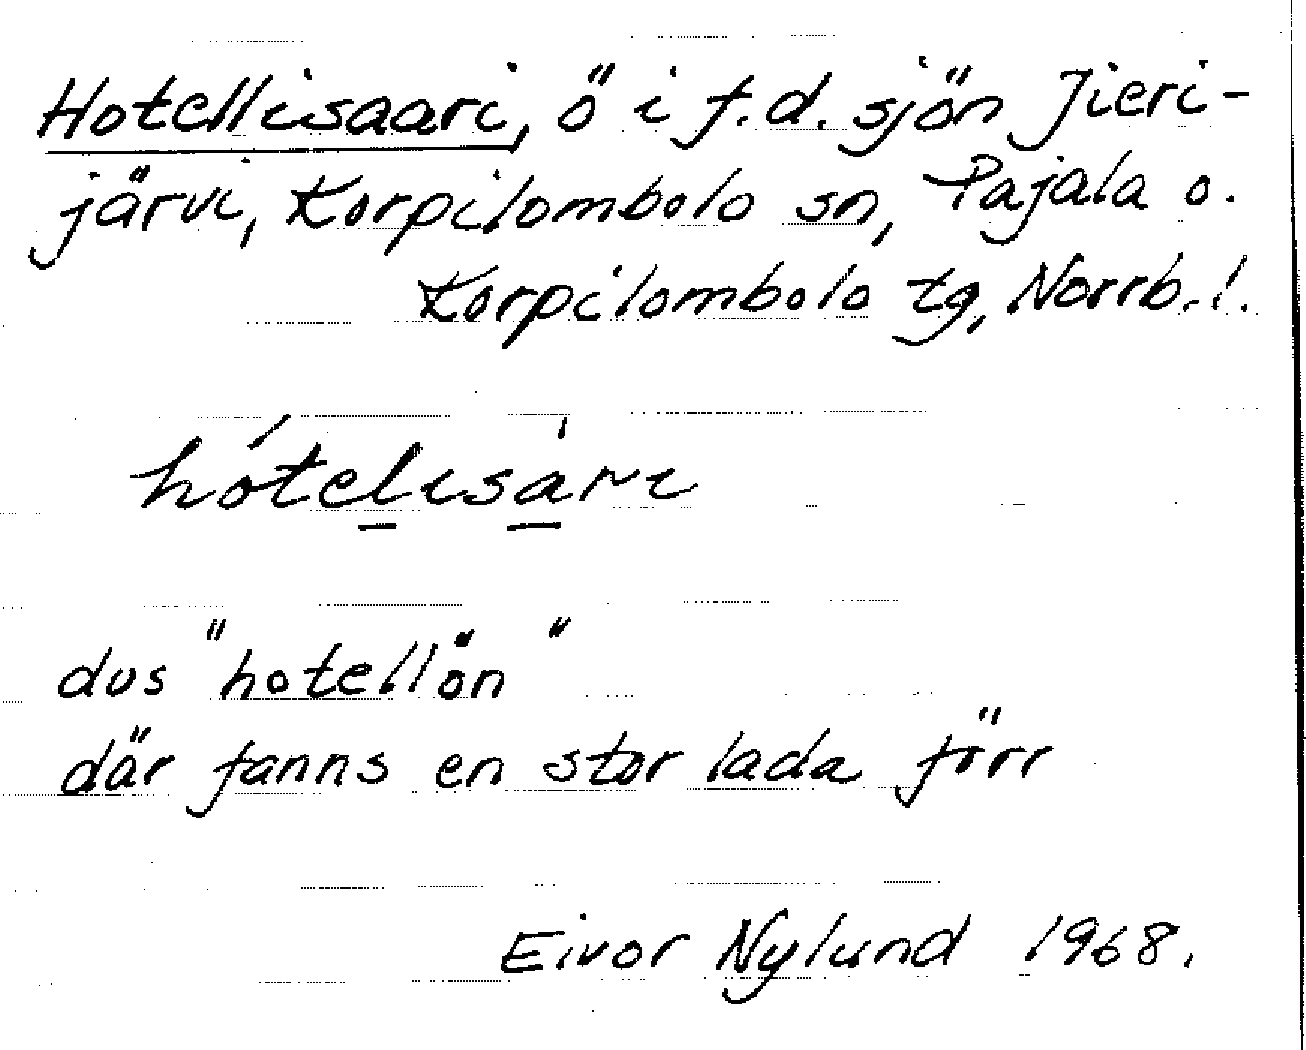 Hotellisaari, ö i f.d. sjön Jieri-
järvi, Korpilombolo sn, Pajala o.
Korpilombolo tg, Norrb. l.
hótel̲isa̲̍ri
dvs "hotellön"
där fanns en stor lada förr
Eivor Nylund 1968.